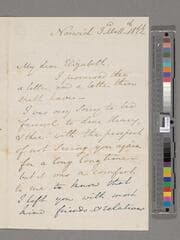 Norwich 3
My dear Elizabeth,
I promised thee
a letter and a letter thou
shalt have.
I was very sorry to bid
farewell to dear
& thee with the prospect
of not seeing you again
for a long long time
but it was a comfort
to me to know that
I left you with most
kind friends & relations